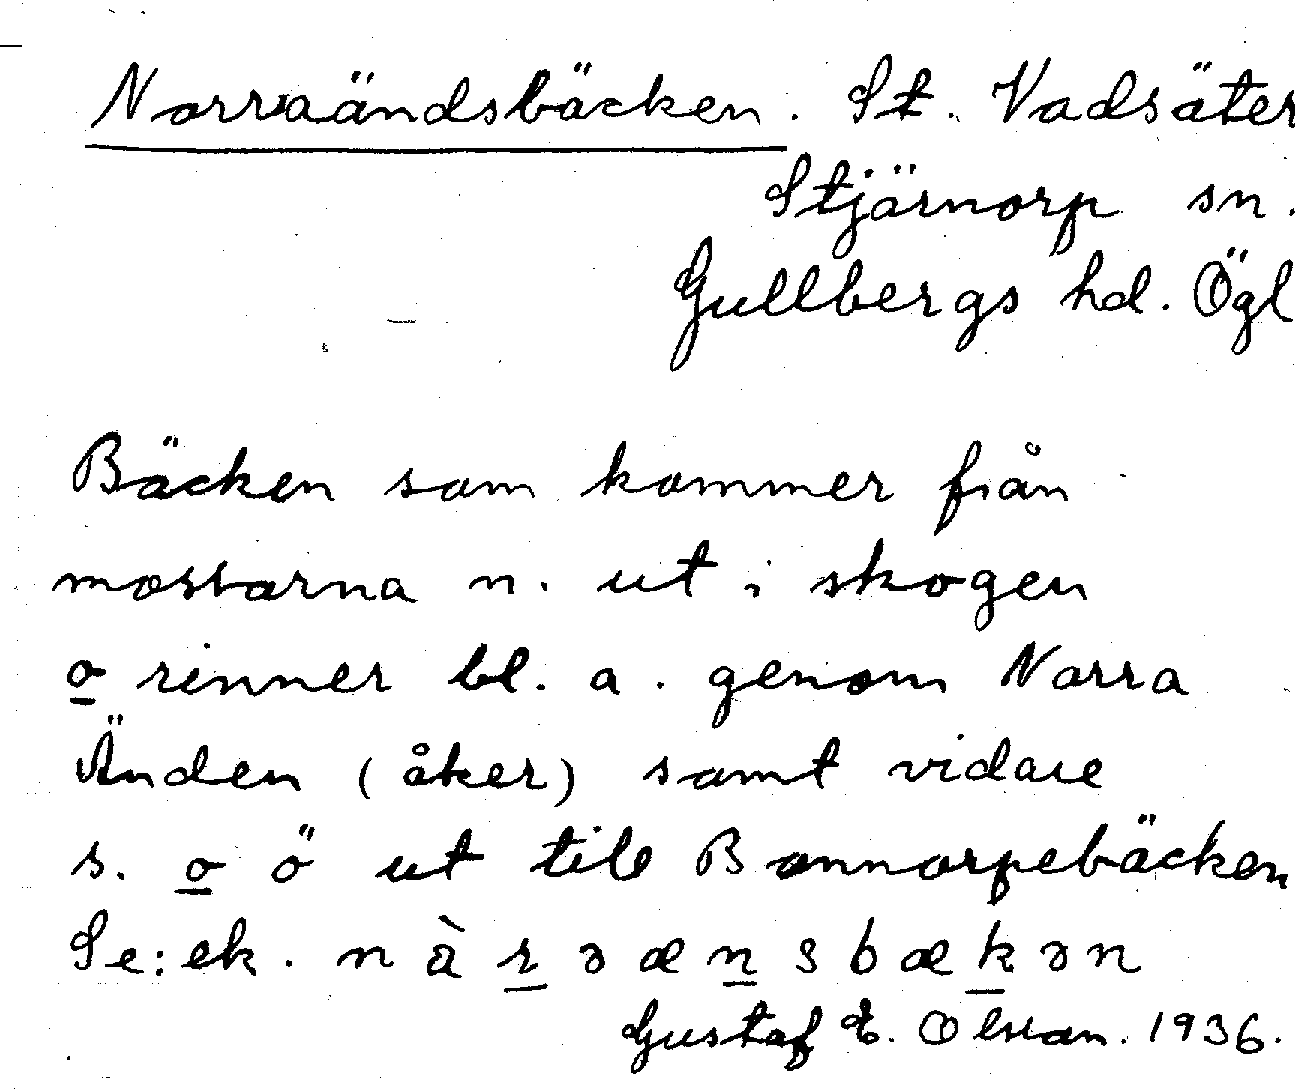 Norraändsbäcken. St. Vadsäter
Stjärnorp sn.
Gullbergs hd. Ögl
Bäcken som kommer från
mossarna n. ut i skogen
o rinner bl. a. genom Norra
Änden (åker) samt vidare
s. o ö ut till Bonnorpebäcken
Se: ek. n à r ə æ n s b æ k ə n
Gustaf E. Olsson. 1936.